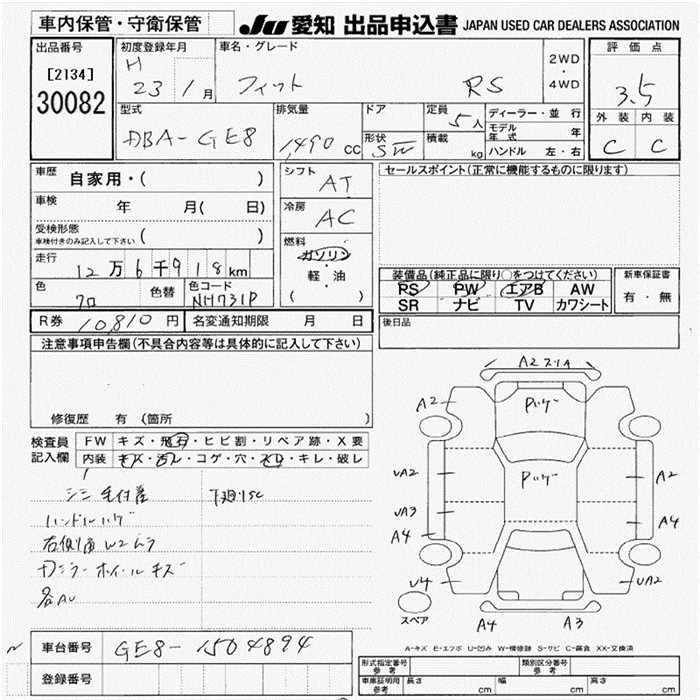 車内保管・守衛保管 JU 愛知 出品申込書 JAPAN USED CAR DEALERS ASSOCIATION
出品番号 初度登録年月 車名・グレード 2WD・4WD 評価点
[2134] H 23年 1月 フィット RS 3.5
30082 型式 排気量 ドア 定員 5人 ディーラー・並行 外装 内装
DBA-GE8 1490cc 形状 SW 積載 kg モデル年式 年 C C
ハンドル 左・右
車歴 自家用・( ) シフト AT セールスポイント(正常に機能するものに限ります)
車検 年 月( 日) 冷房 AC
受検形態 ( )
車検付きのみ記入して下さい
燃料 ガソリン・軽・油 ( )
走行 12万6千918km 装備品(純正品に限り○をつけてください) 新車保証書
色 クロ 色替 色コード NH731P PS PW エアB AW 有・無
SR ナビ TV カワシート
R券 10,810円 名変通知期限 月 日 後日品
注意事項申告欄(不具合内容等は具体的に記入して下さい)
修復歴 有 (箇所 )
検査員 FW キズ・飛石・ヒビ割・リペア跡・X要
記入欄 内装 キズ・汚レ・コゲ・穴・スレ・キレ・破レ
シミ 毛付着 下廻りSC
ハンドルハゲ
右側面 W2ムラ
アルミホイールキズ
各AU
A2 スリA
A2 Pハゲ
UA2 Pハゲ A2
UA3 A4
A4
U4 UA2
スペア A4 A3
A-キズ E-エクボ U-凹み W-補修跡 S-サビ C-腐食 XX-交換済
車台番号 GE8-1504894
登録番号
形式指定番号 参考 類別区分番号 参考
車庫証明用 参考 長さ cm 幅 cm 高さ cm